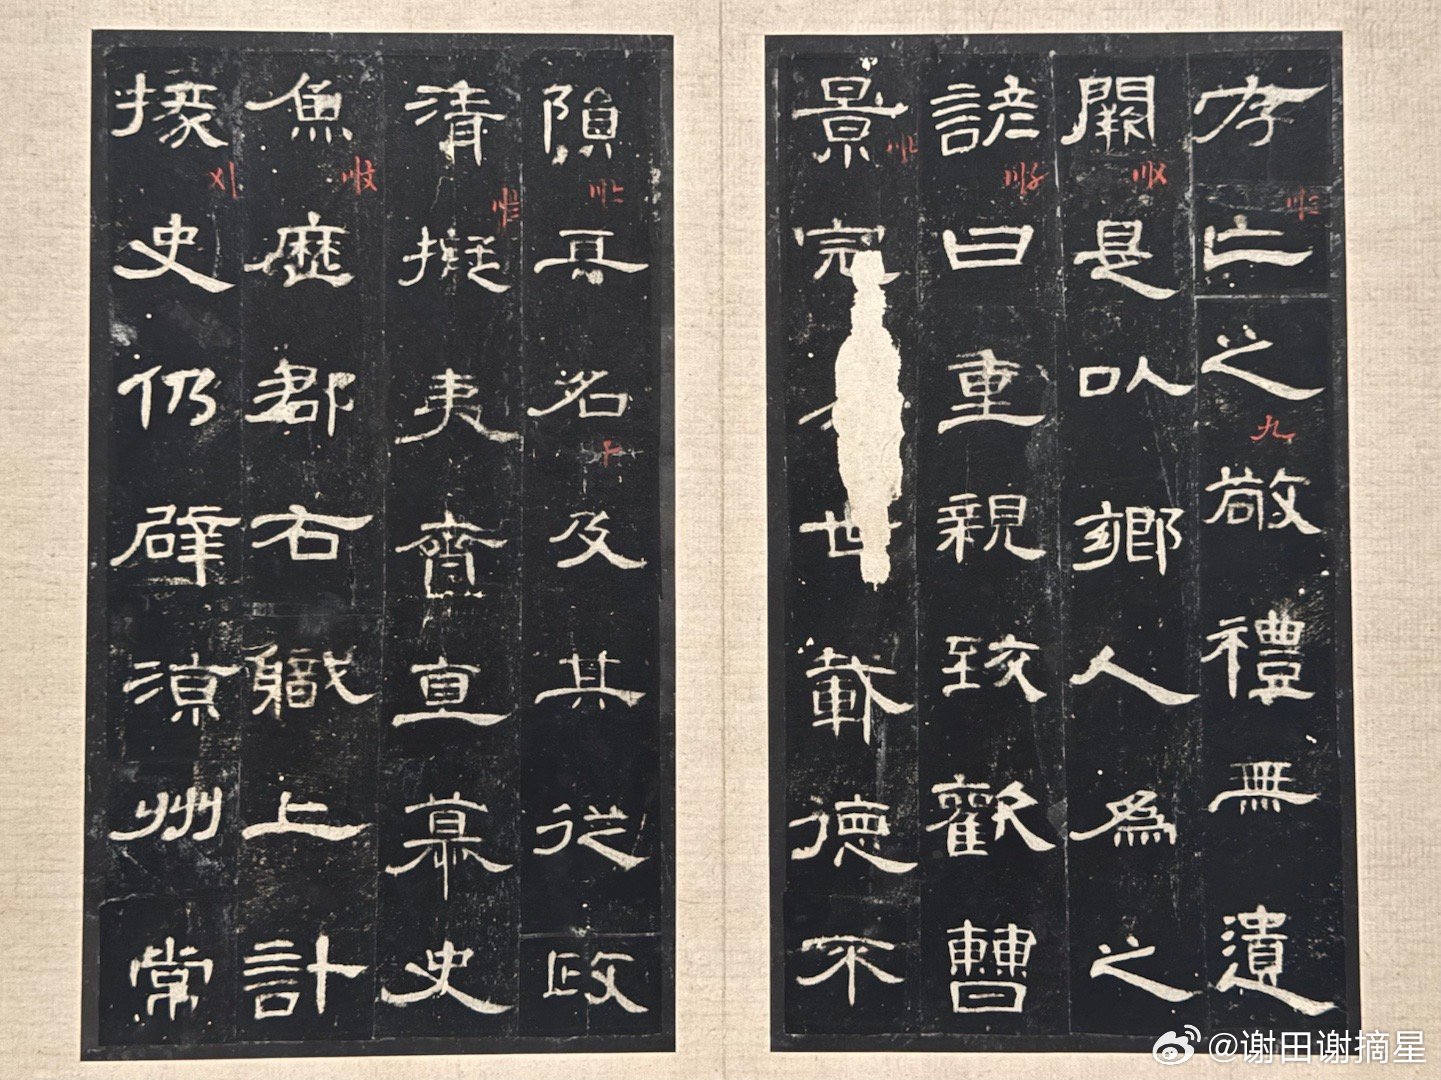 存亡之敬禮無遺
闕是以鄉人為之
諺曰重親致歡曹
景完世載德不
隕其名及其從政
清擬夷齊直慕史
魚歷郡右職上計
掾史仍辟涼州常
九
十
@谢田谢摘星